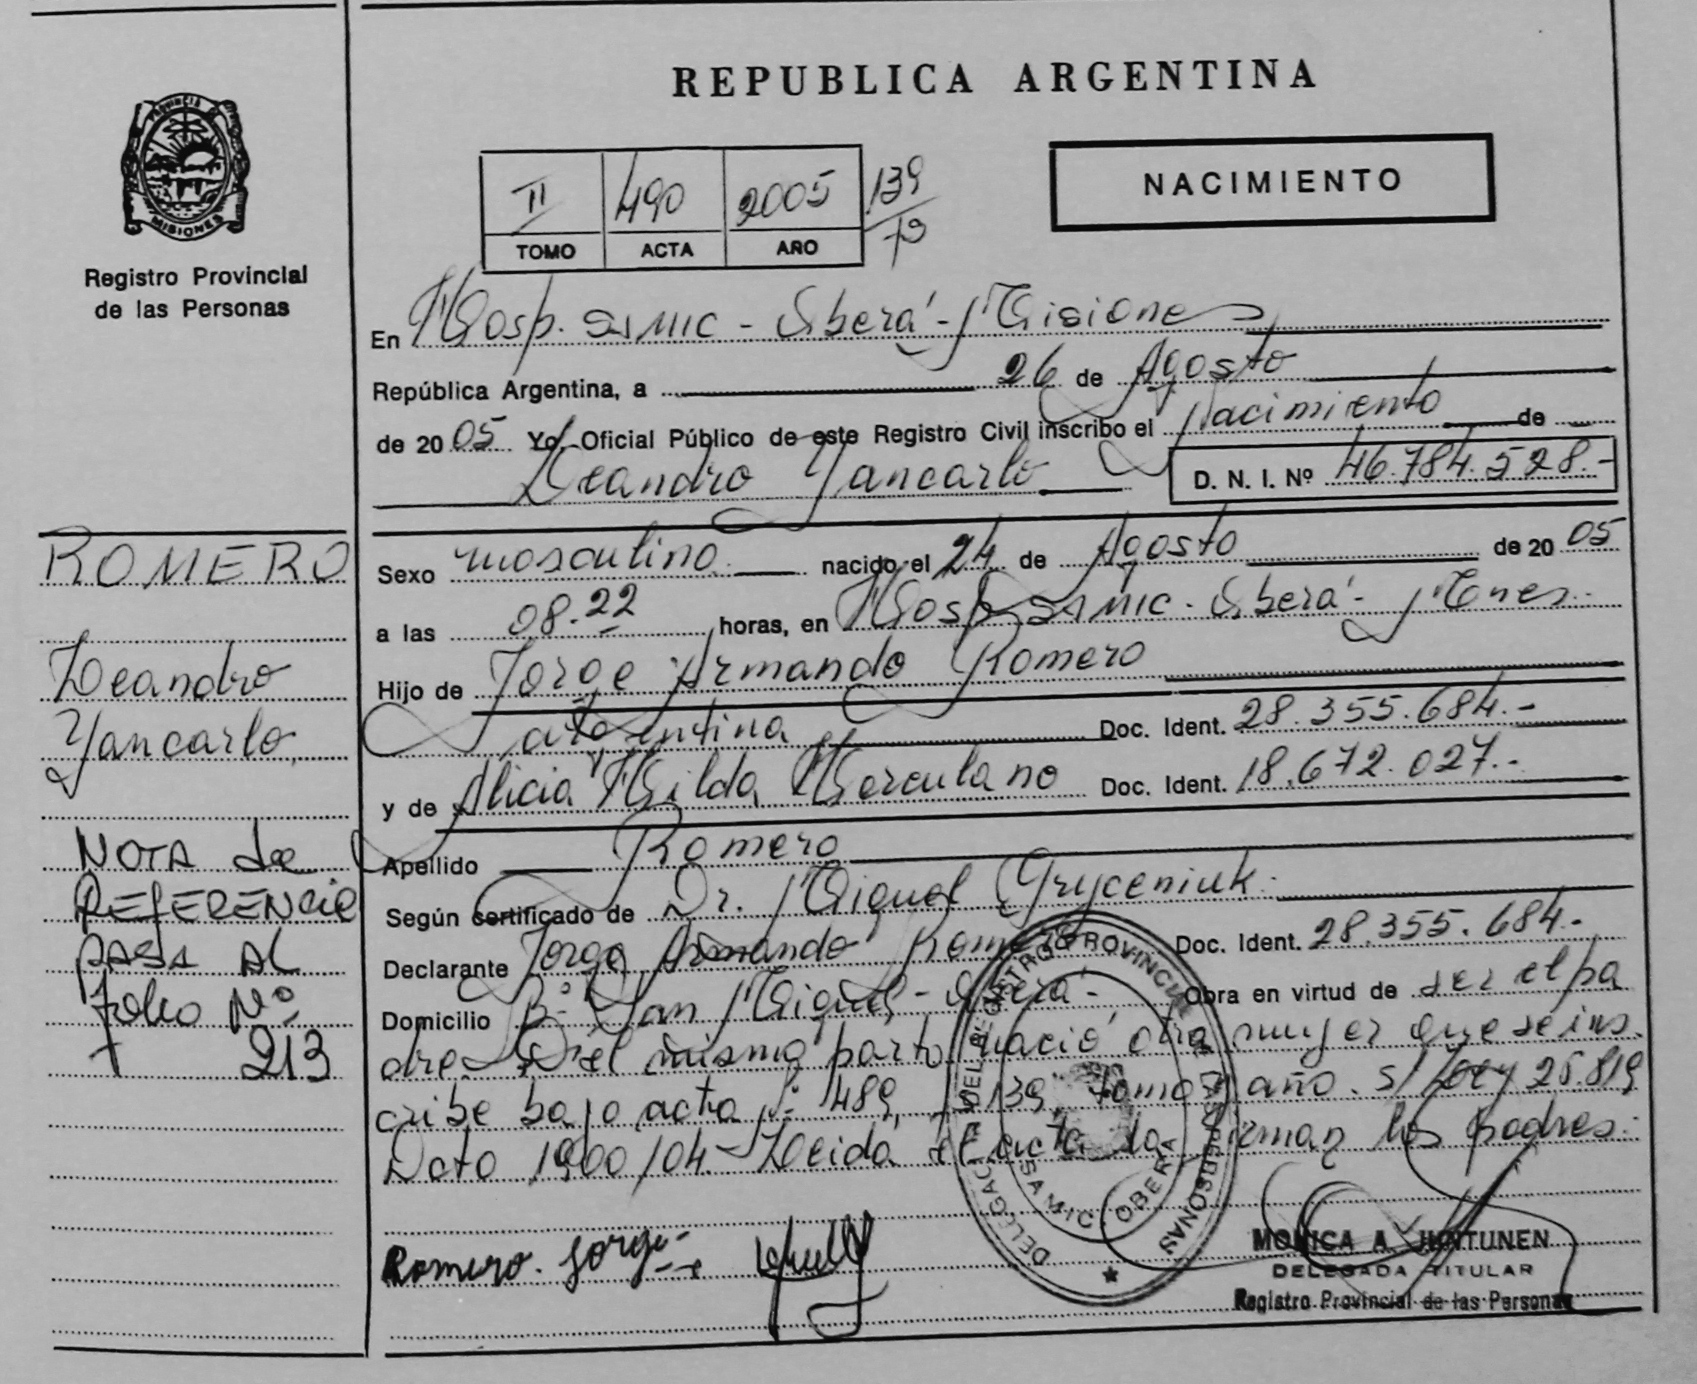 REPUBLICA ARGENTINA
PROVINCIA
MISIONES
Registro Provincial
de las Personas
NACIMIENTO
II 490 2005 139
TOMO ACTA AÑO
En Hosp. SAMIC - Oberá - Misiones
República Argentina, a 26 de Agosto
de 2005 Yo, Oficial Público de este Registro Civil inscribo el Nacimiento de
Leandro Yancarlo D. N. I. Nº 46.784.528.-
ROMERO
Leandro
Yancarlo
NOTA de
REFERENCIA
PASA AL
Folio Nº
213
Sexo masculino nacido el 24 de Agosto de 2005
a las 08.22 horas, en Hosp SAMIC - Oberá - Mnes.
Hijo de Jorge Armando Romero
argentina Doc. Ident. 28.355.684.-
y de Alicia Hilda Herculano Doc. Ident. 18.672.027.-
Apellido Romero
Según certificado de Dr. Miguel Gryceniuk.
Declarante Jorge Armando Romero Doc. Ident. 28.355.684.-
Domicilio Bº San Miguel - Oberá - Obra en virtud de ser el pa
dre - Del mismo parto nació otra mujer que se ins
cribe bajo acta Nº 489, 139, tomo año. s/ Ley 25.819
Dcto 1900/04 - Leida el acta la firman los padres.-
Romero. Jorge
DELEGACION DEL REGISTRO PROVINCIAL DE LAS PERSONAS
SAMIC OBERA
MONICA A. JUNTUNEN
DELEGADA TITULAR
Registro Provincial de las Personas